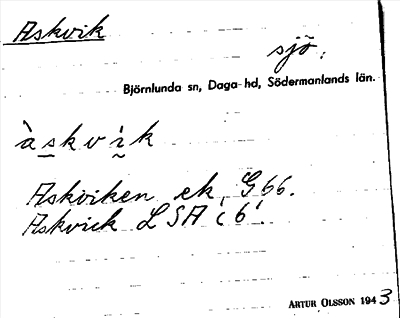 Askvik
sjö.
Björnlunda sn, Daga hd, Södermanlands län.
àskvìk
Askviken ek. G 66.
Askvick LSA c 6.
ARTUR OLSSON 1943